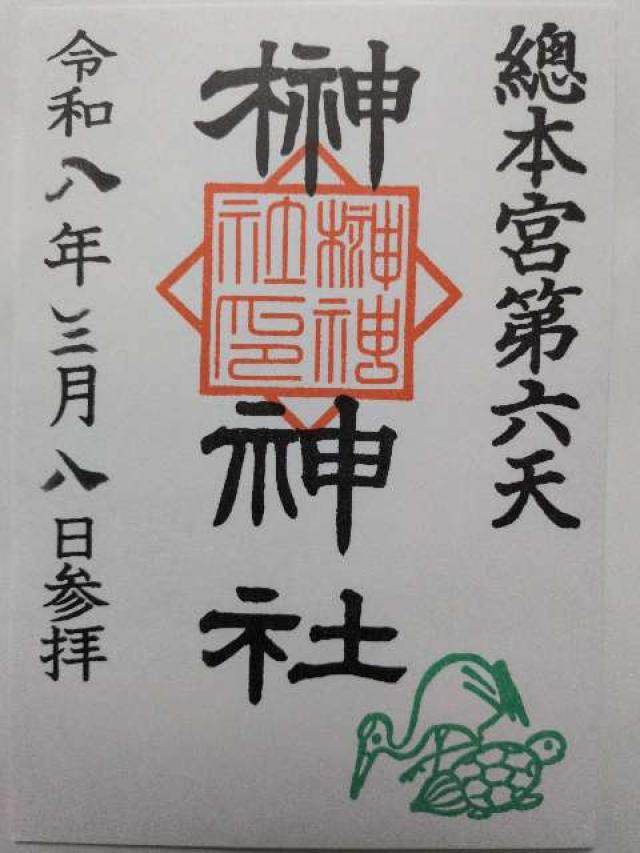 總本宮第六天
榊神社
榊神
社印
令和八年三月八日参拝